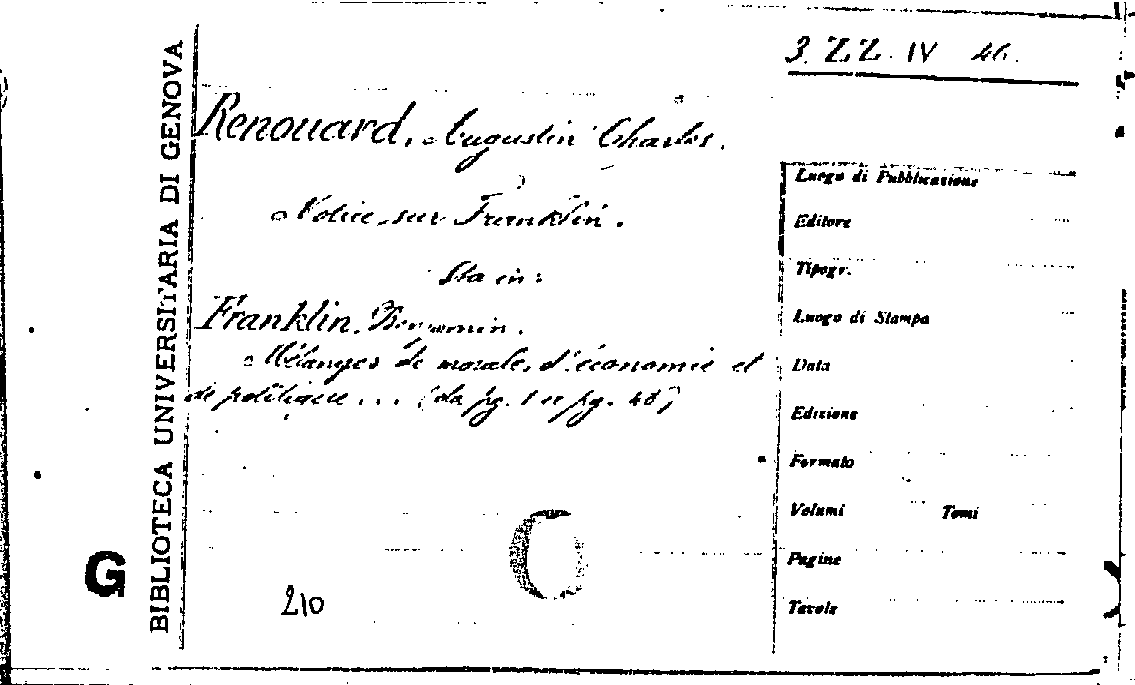 3. ZZ. IV 46.
Renouard, Augustin Charles.
Notice sur Franklin.
Sta in:
Franklin, Benjamin.
Mélanges de morale, d'économie et
de politique... (da pg. 1 a pg. 48)
210
BIBLIOTECA UNIVERSITARIA DI GENOVA
G
Luogo di Pubblicazione
Editore
Tipogr.
Luogo di Stampa
Data
Edizione
Formato
Volumi Tomi
Pagine
Tavole